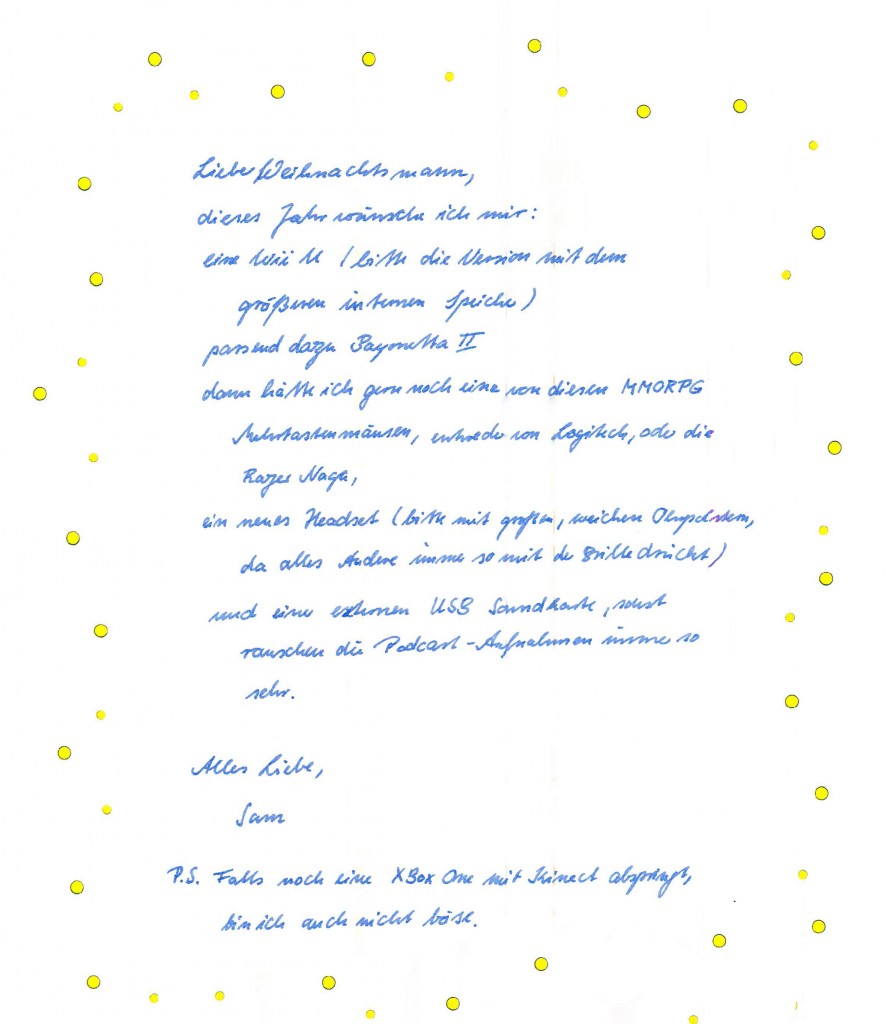 Lieber Weihnachtsmann,
dieses Jahr wünsche ich mir:
eine Wii U (bitte die Version mit dem
größeren internen Speicher)
passend dazu Bayonetta II
dann hätte ich gern noch eine von diesen MMORPG
Mehrtastenmäusen, entweder von Logitech, oder die
Razer Naga,
ein neues Headset (bitte mit großen, weichen Ohrpolstern,
da alles Andere immer so mit der Brille drückt)
und eine externen USB Soundkarte, sonst
rauschen die Podcast-Aufnahmen immer so
sehr.
Alles Liebe,
Sam
P.S. Falls noch eine XBox One mit Kinect abspringt,
bin ich auch nicht böse.